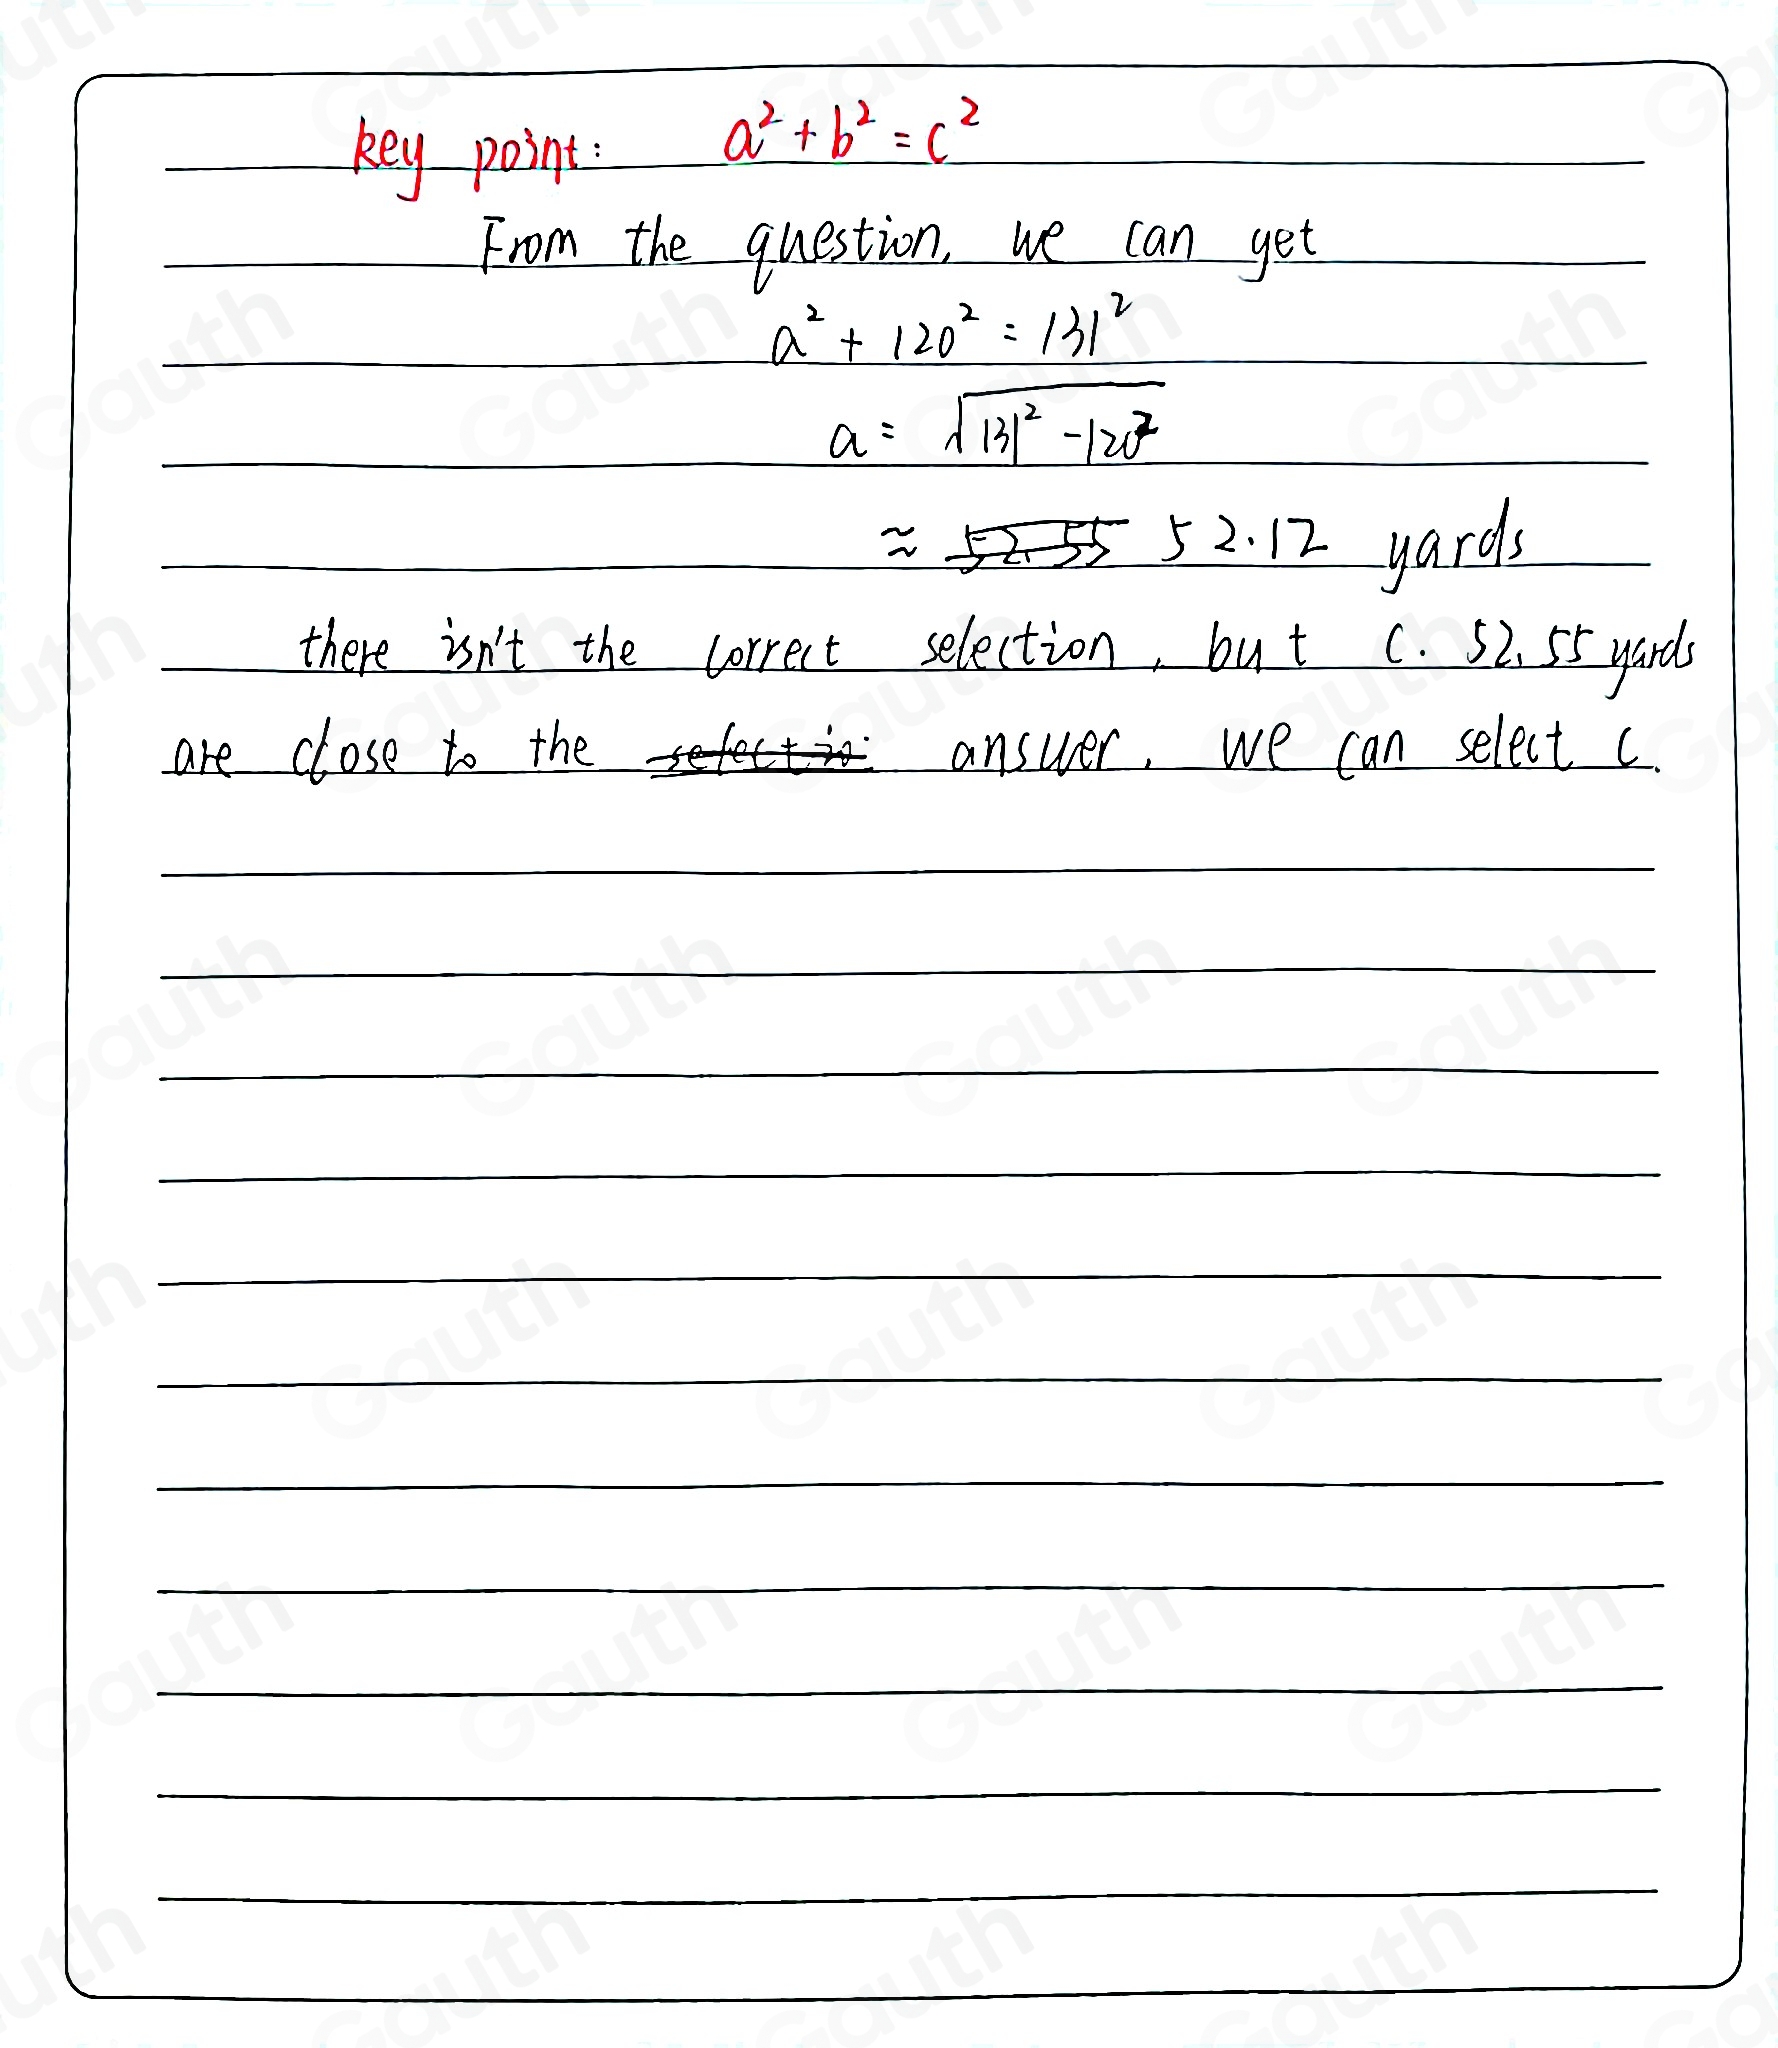 key point: a² + b² = c²
From the question, we can get
a² + 120² = 131²
a = √131² - 120²
≈ 52.55 52.12 yards
there isn't the correct selection, but C. 52.55 yards
are close to the selectio answer. we can select C.